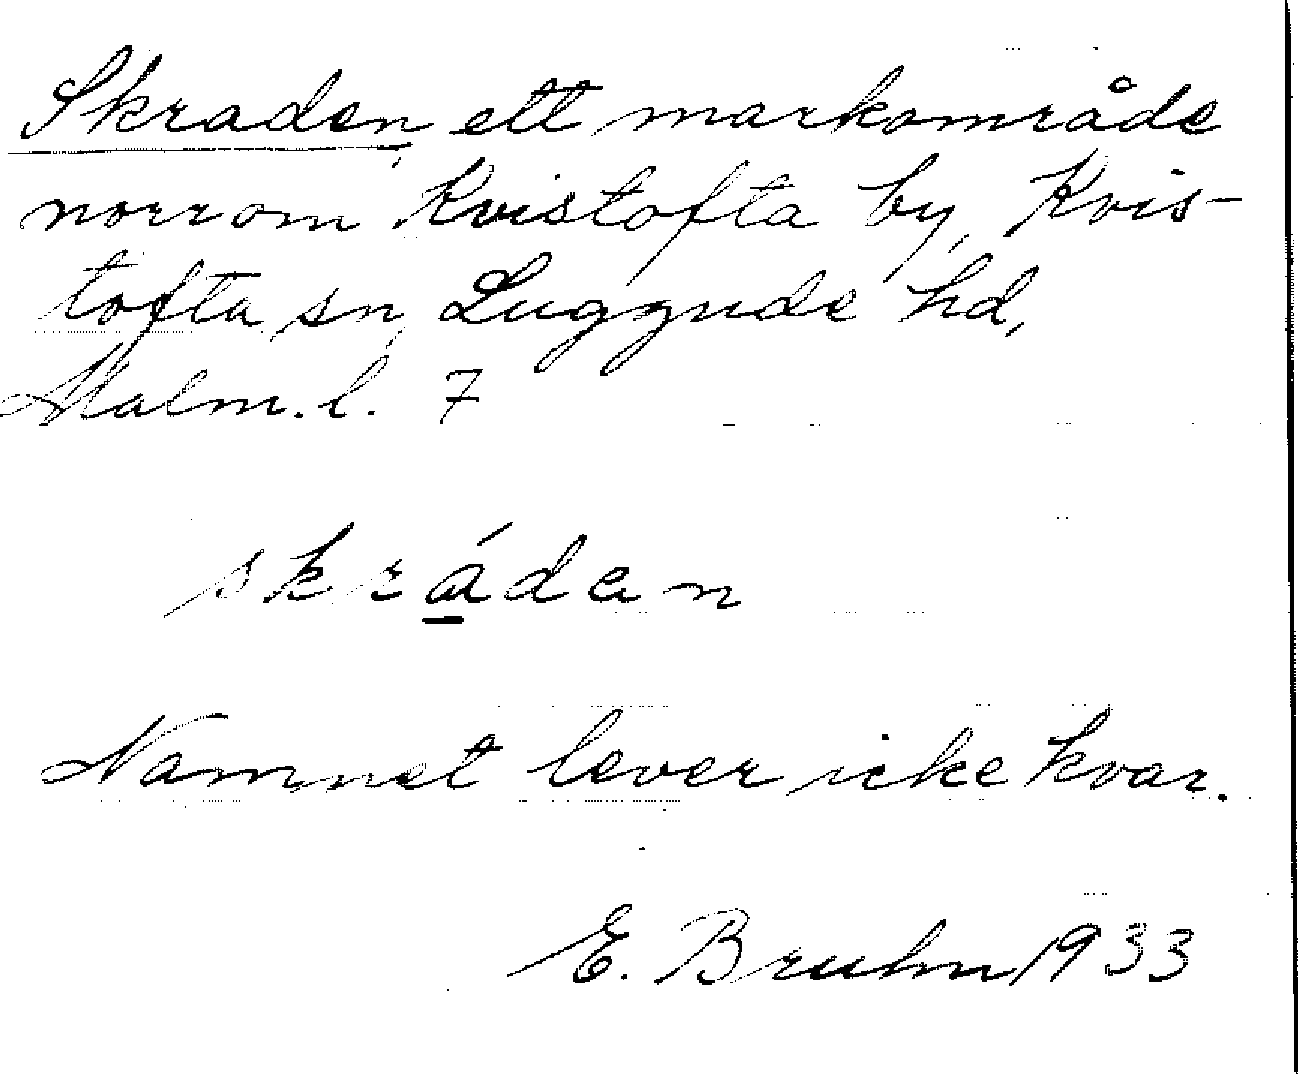 Skraden ett markområde
norr om Kvistofta by, Kvis-
tofta sn, Luggude hd,
Malm. l. 7
skrádan
Namnet lever icke kvar.
E. Bruhn 1933